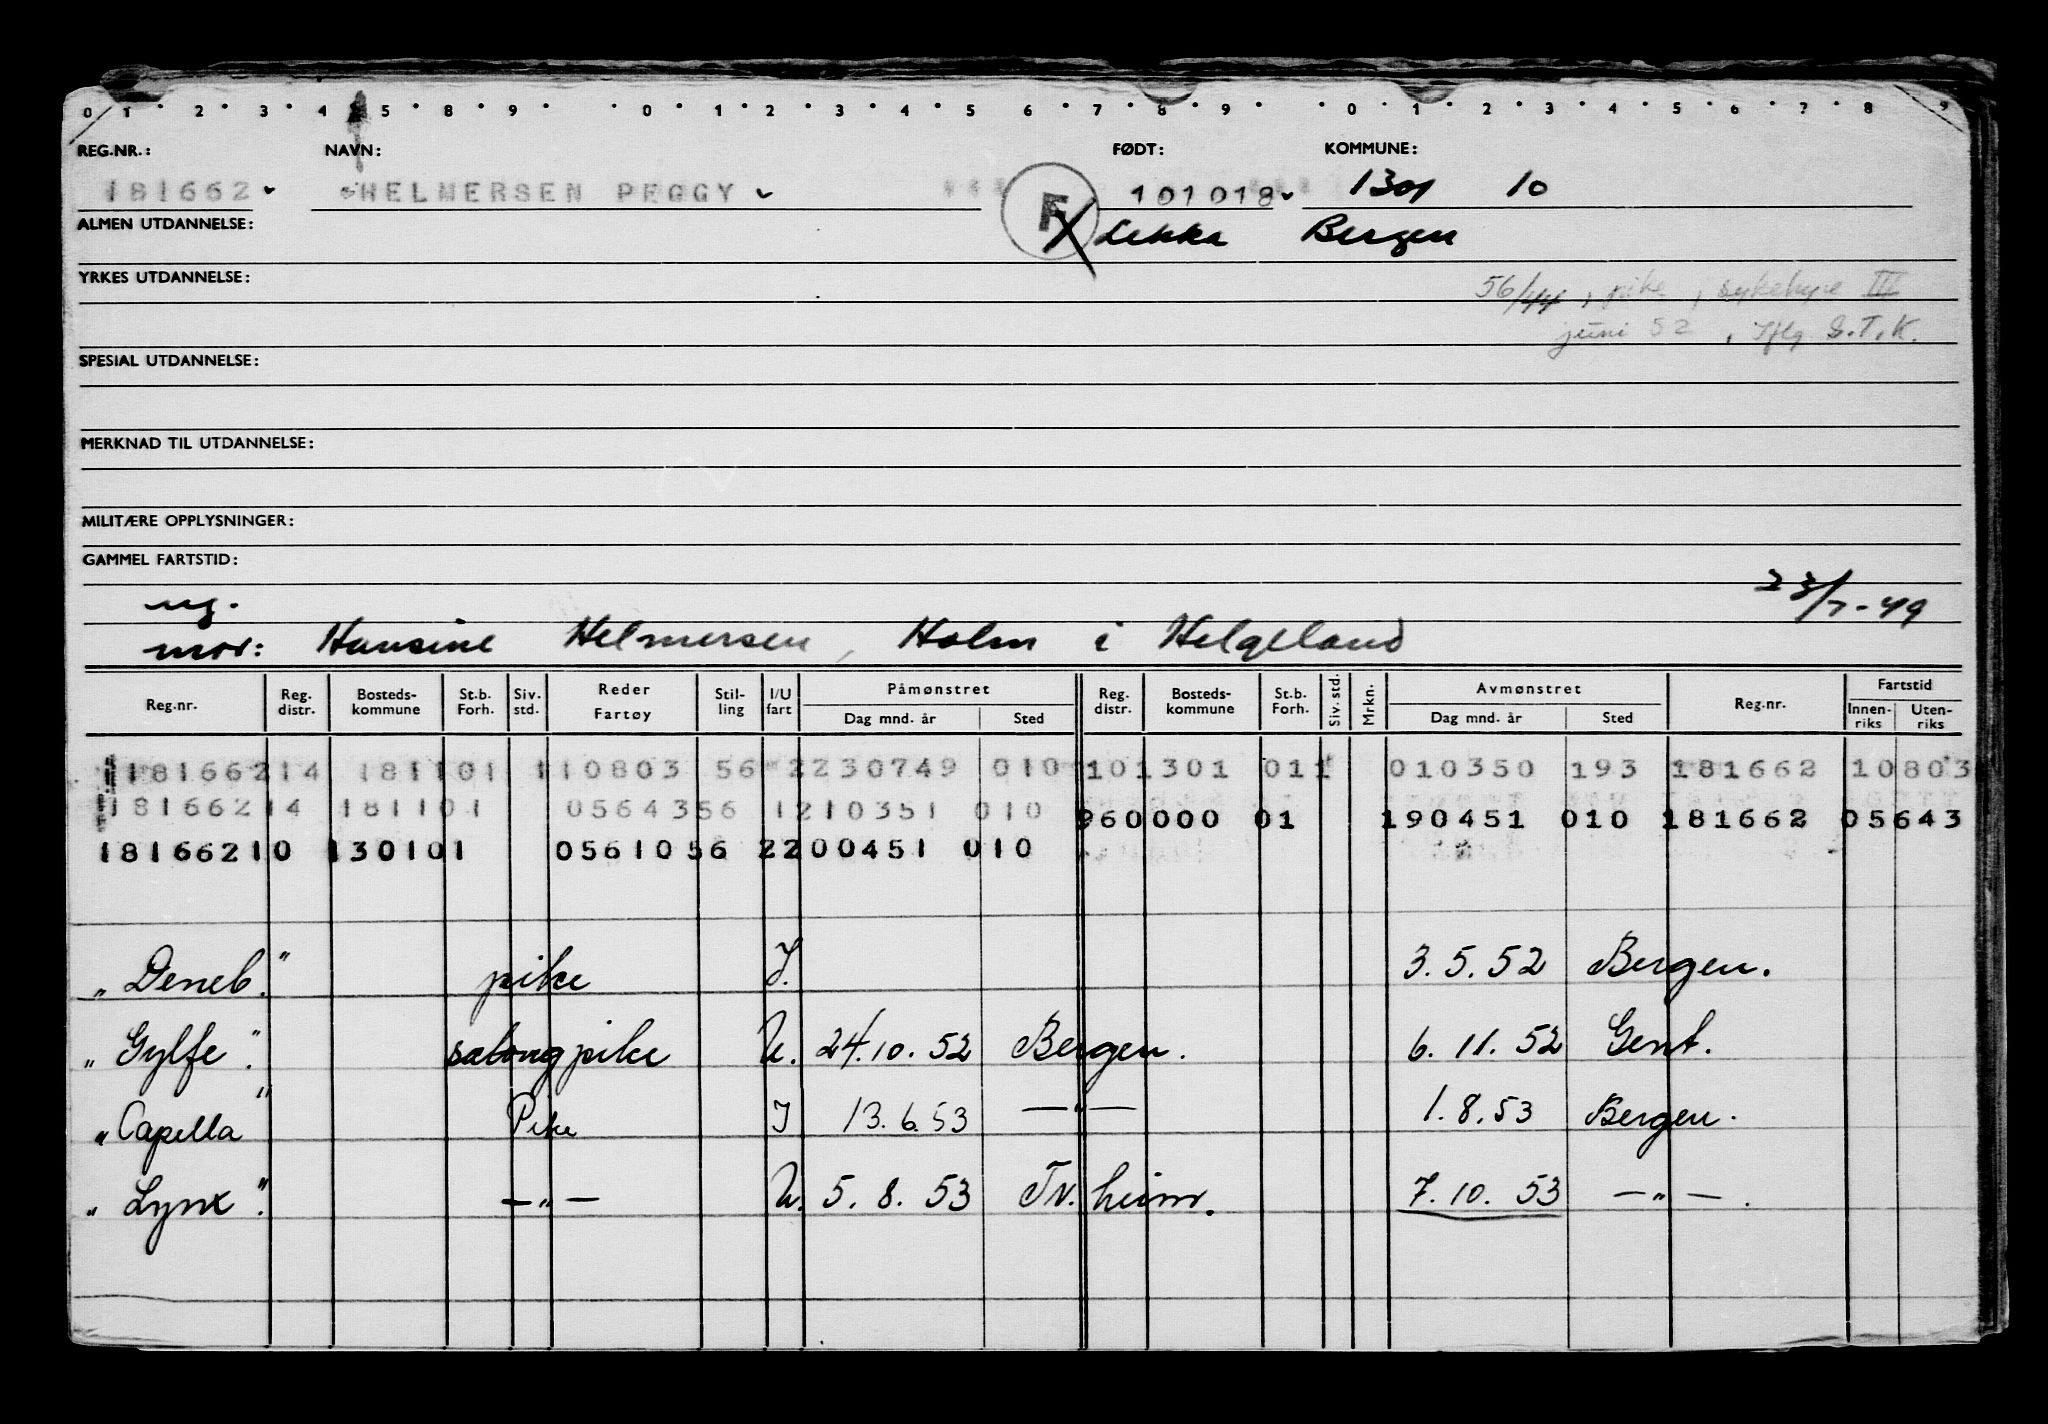 0 1 2 3 4 5 8 9 0 1 2 3 4 5 6 7 8 9 0 1 2 3 4 5 6 7 8 9
REG.NR.: NAVN: FØDT: KOMMUNE:
181662 HELMERSEN PEGGY F 101018 1301 10
ALMEN UTDANNELSE: Lekka Bergen
YRKES UTDANNELSE: 56/44, pike,
juni 52, Iflg S.T.K.
SPESIAL UTDANNELSE:
MERKNAD TIL UTDANNELSE:
MILITÆRE OPPLYSNINGER:
GAMMEL FARTSTID:
ug. 23/7-49
mor: Hansine Helmersen, Holm i Helgeland
Reg.nr. Reg. distr. Bosteds- kommune St.b. Forh. Siv. std. Reder Fartøy Stil- ling I/U fart Påmønstret Dag mnd. år Sted Reg. distr. Bosteds- kommune St.b. Forh. Siv. std. Mrkn. Avmønstret Dag mnd. år Sted Reg.nr. Fartstid Innen- riks Uten- riks
18166214 181101 110803 56 2230749 010 101301 011 010350 193 181662 10803
18166214 181101 0564356 1210351 010 960000 01 190451 010 181662 05643
18166210 130101 0561056 2200451 010
"Deneb." pike I. 3.5.52 Bergen.
"Gylfe". salongpike U. 24.10.52 Bergen. 6.11.52 Gent.
"Capella" Pike I 13.6.53 —"— 1.8.53 Bergen.
"Lynx". —"— U. 5.8.53 Tr.heim. 7.10.53 —"—.